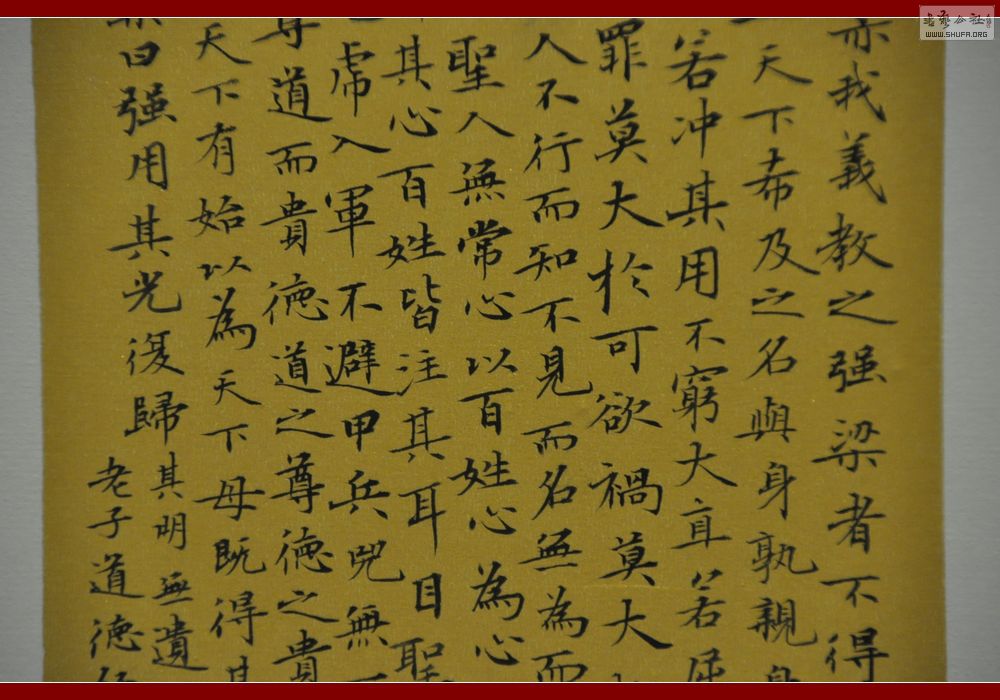 亦我義教之强梁者不得
天下希及之名與身孰親身
若冲其用不窮大直若屈
罪莫大於可欲禍莫大
人不行而知不見而名無為而
聖人無常心以百姓心為心
其心百姓皆注其耳目聖
虎入軍不避甲兵兕無
尊道而貴德道之尊德之貴
天下有始以為天下母既得其
曰强用其光復歸
其明無遺
老子道德
WWW.SHUFA.ORG